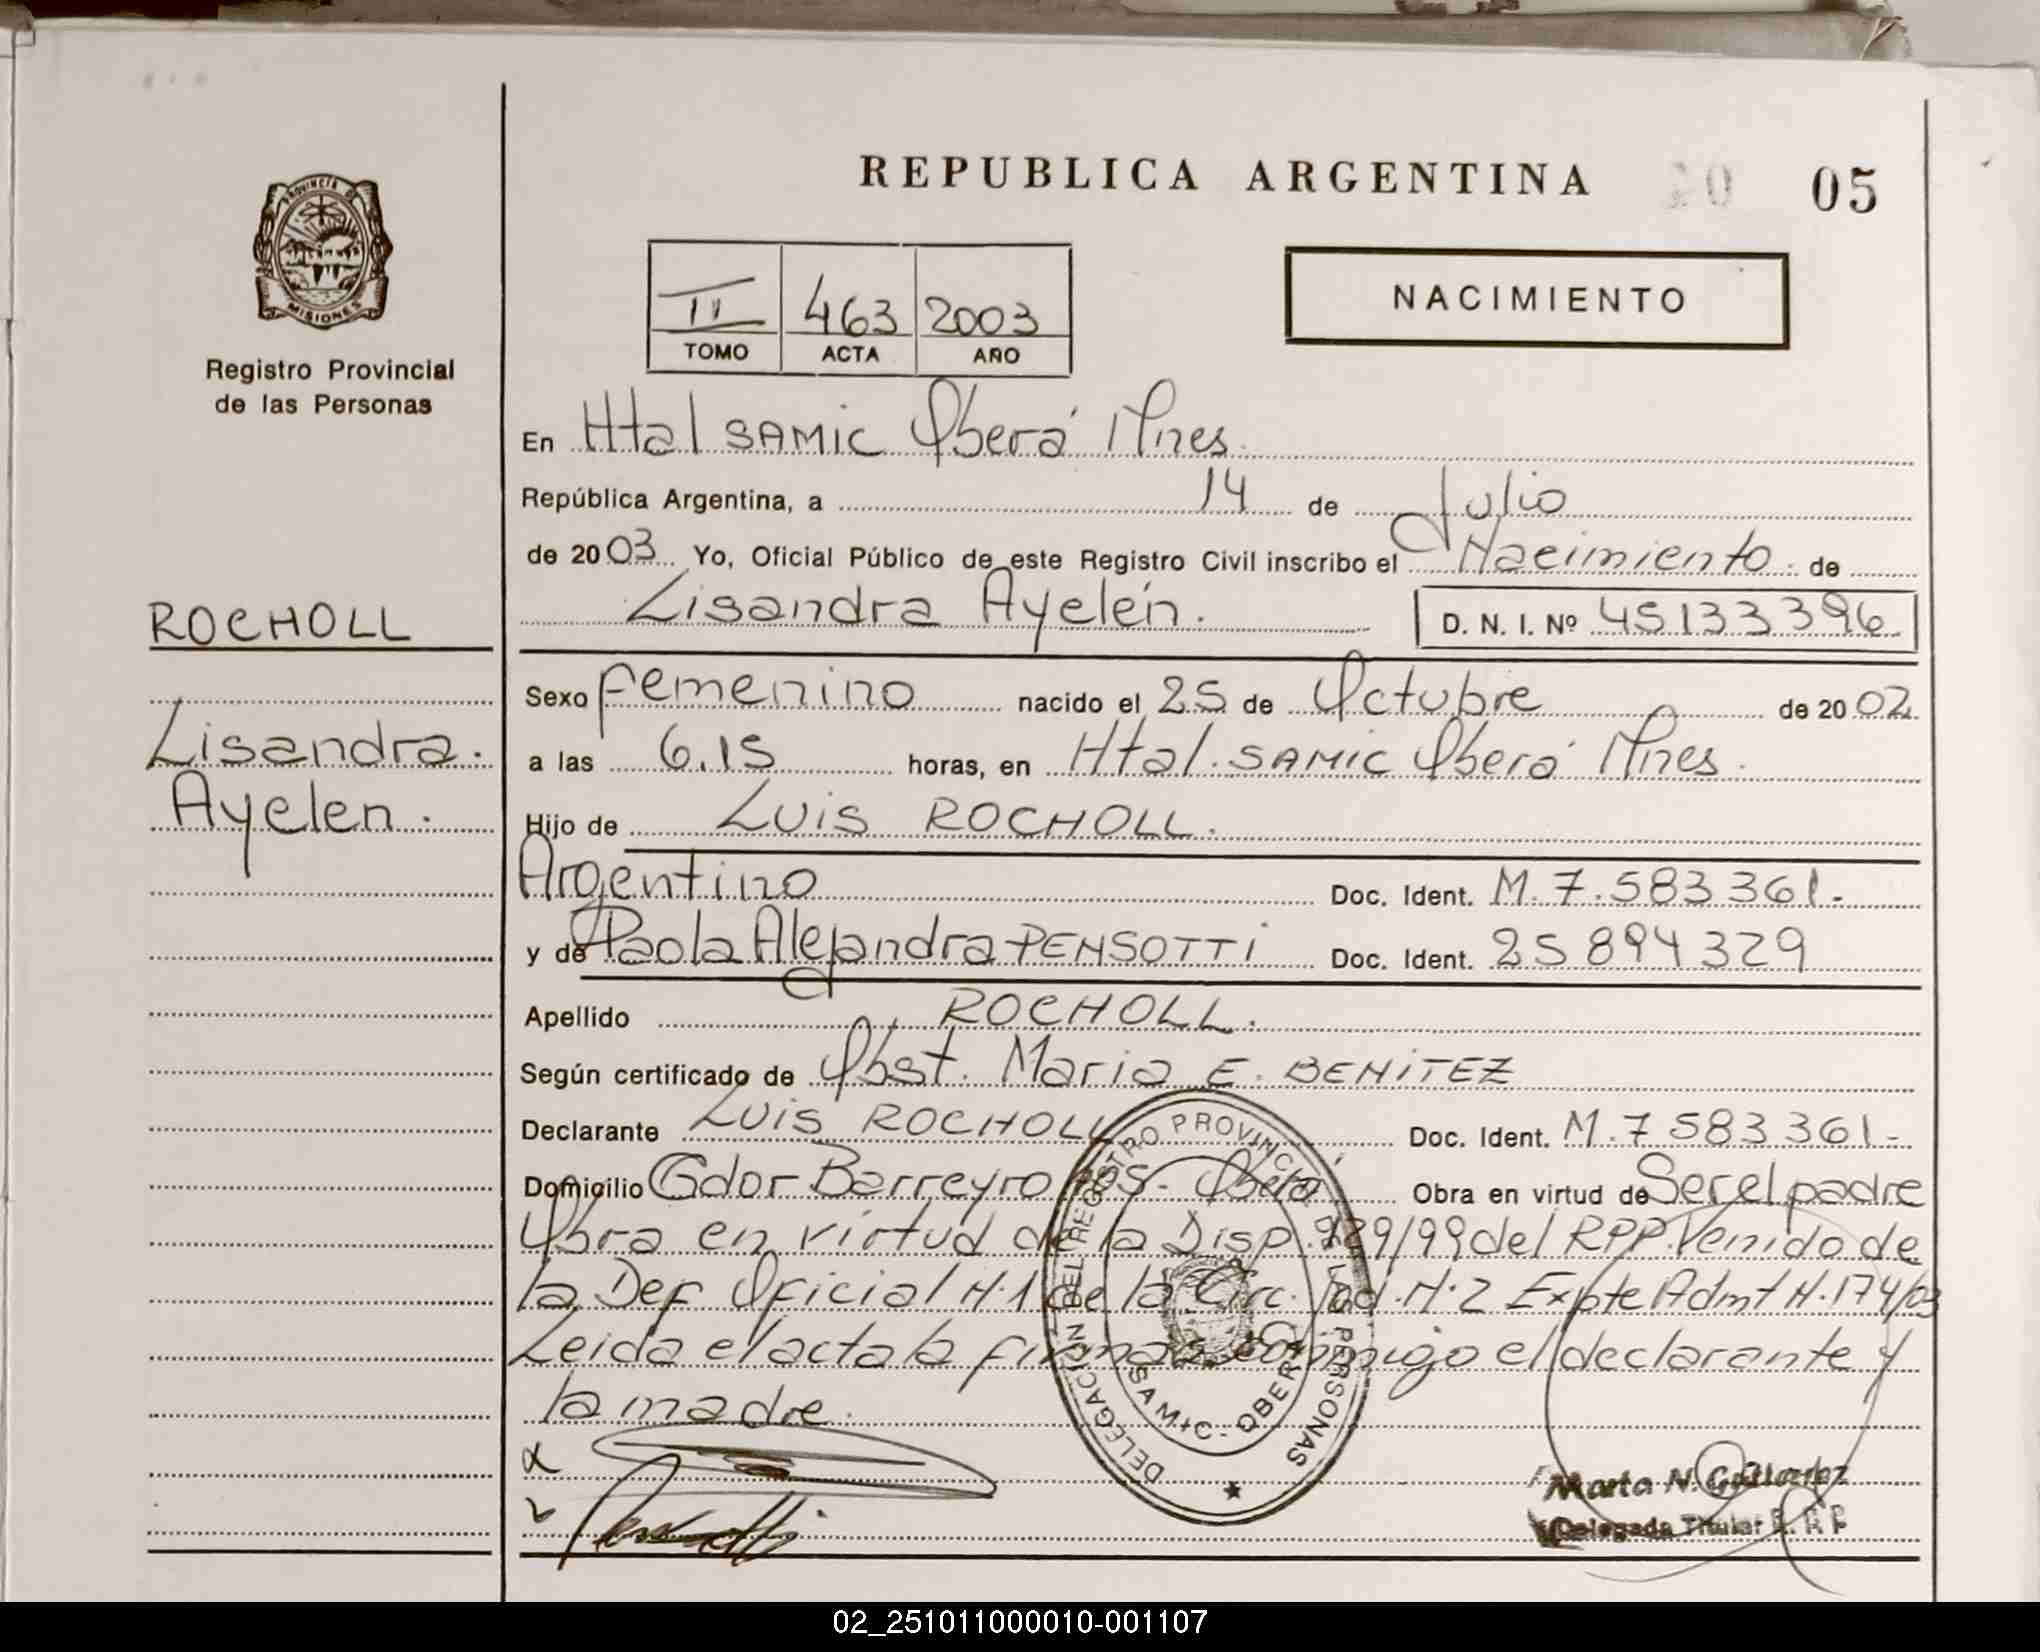 REPUBLICA ARGENTINA 20 05
PROVINCIA DE MISIONES
Registro Provincial
de las Personas
II 463 2003
TOMO ACTA AÑO
NACIMIENTO
En Htal SAMIC Oberá Mnes.
República Argentina, a 14 de Julio
de 2003 Yo, Oficial Público de este Registro Civil inscribo el Nacimiento de
Lisandra Ayelén. D. N. I. Nº 45133396
ROCHOLL
Lisandra.
Ayelen.
Sexo femenino nacido el 25 de Octubre de 2002
a las 6.15 horas, en Htal. SAMIC Oberá Mnes.
Hijo de Luis ROCHOLL.
Argentino Doc. Ident. M. 7.583361.-
y de Paola Alejandra PENSOTTI Doc. Ident. 25894329
Apellido ROCHOLL.
Según certificado de Obst. Maria E. BENITEZ
Declarante Luis ROCHOLL Doc. Ident. M. 7583361-
Domicilio Gdor Barreyro Oberá Obra en virtud de Ser el padre
Obra en virtud de la Disp. 929/99 del RPP. Venido de
la Def Oficial N.1 de la Circ. Jud. N.2 Expte Admt N.174/03
Leida el acta la firman conmigo el declarante y
la madre.
DELEGACION DEL REGISTRO PROVINCIAL DE LAS PERSONAS
SAMIC - OBERA
Marta N. Gutierrez
Delegada Titular R.P.P
02_251011000010-001107